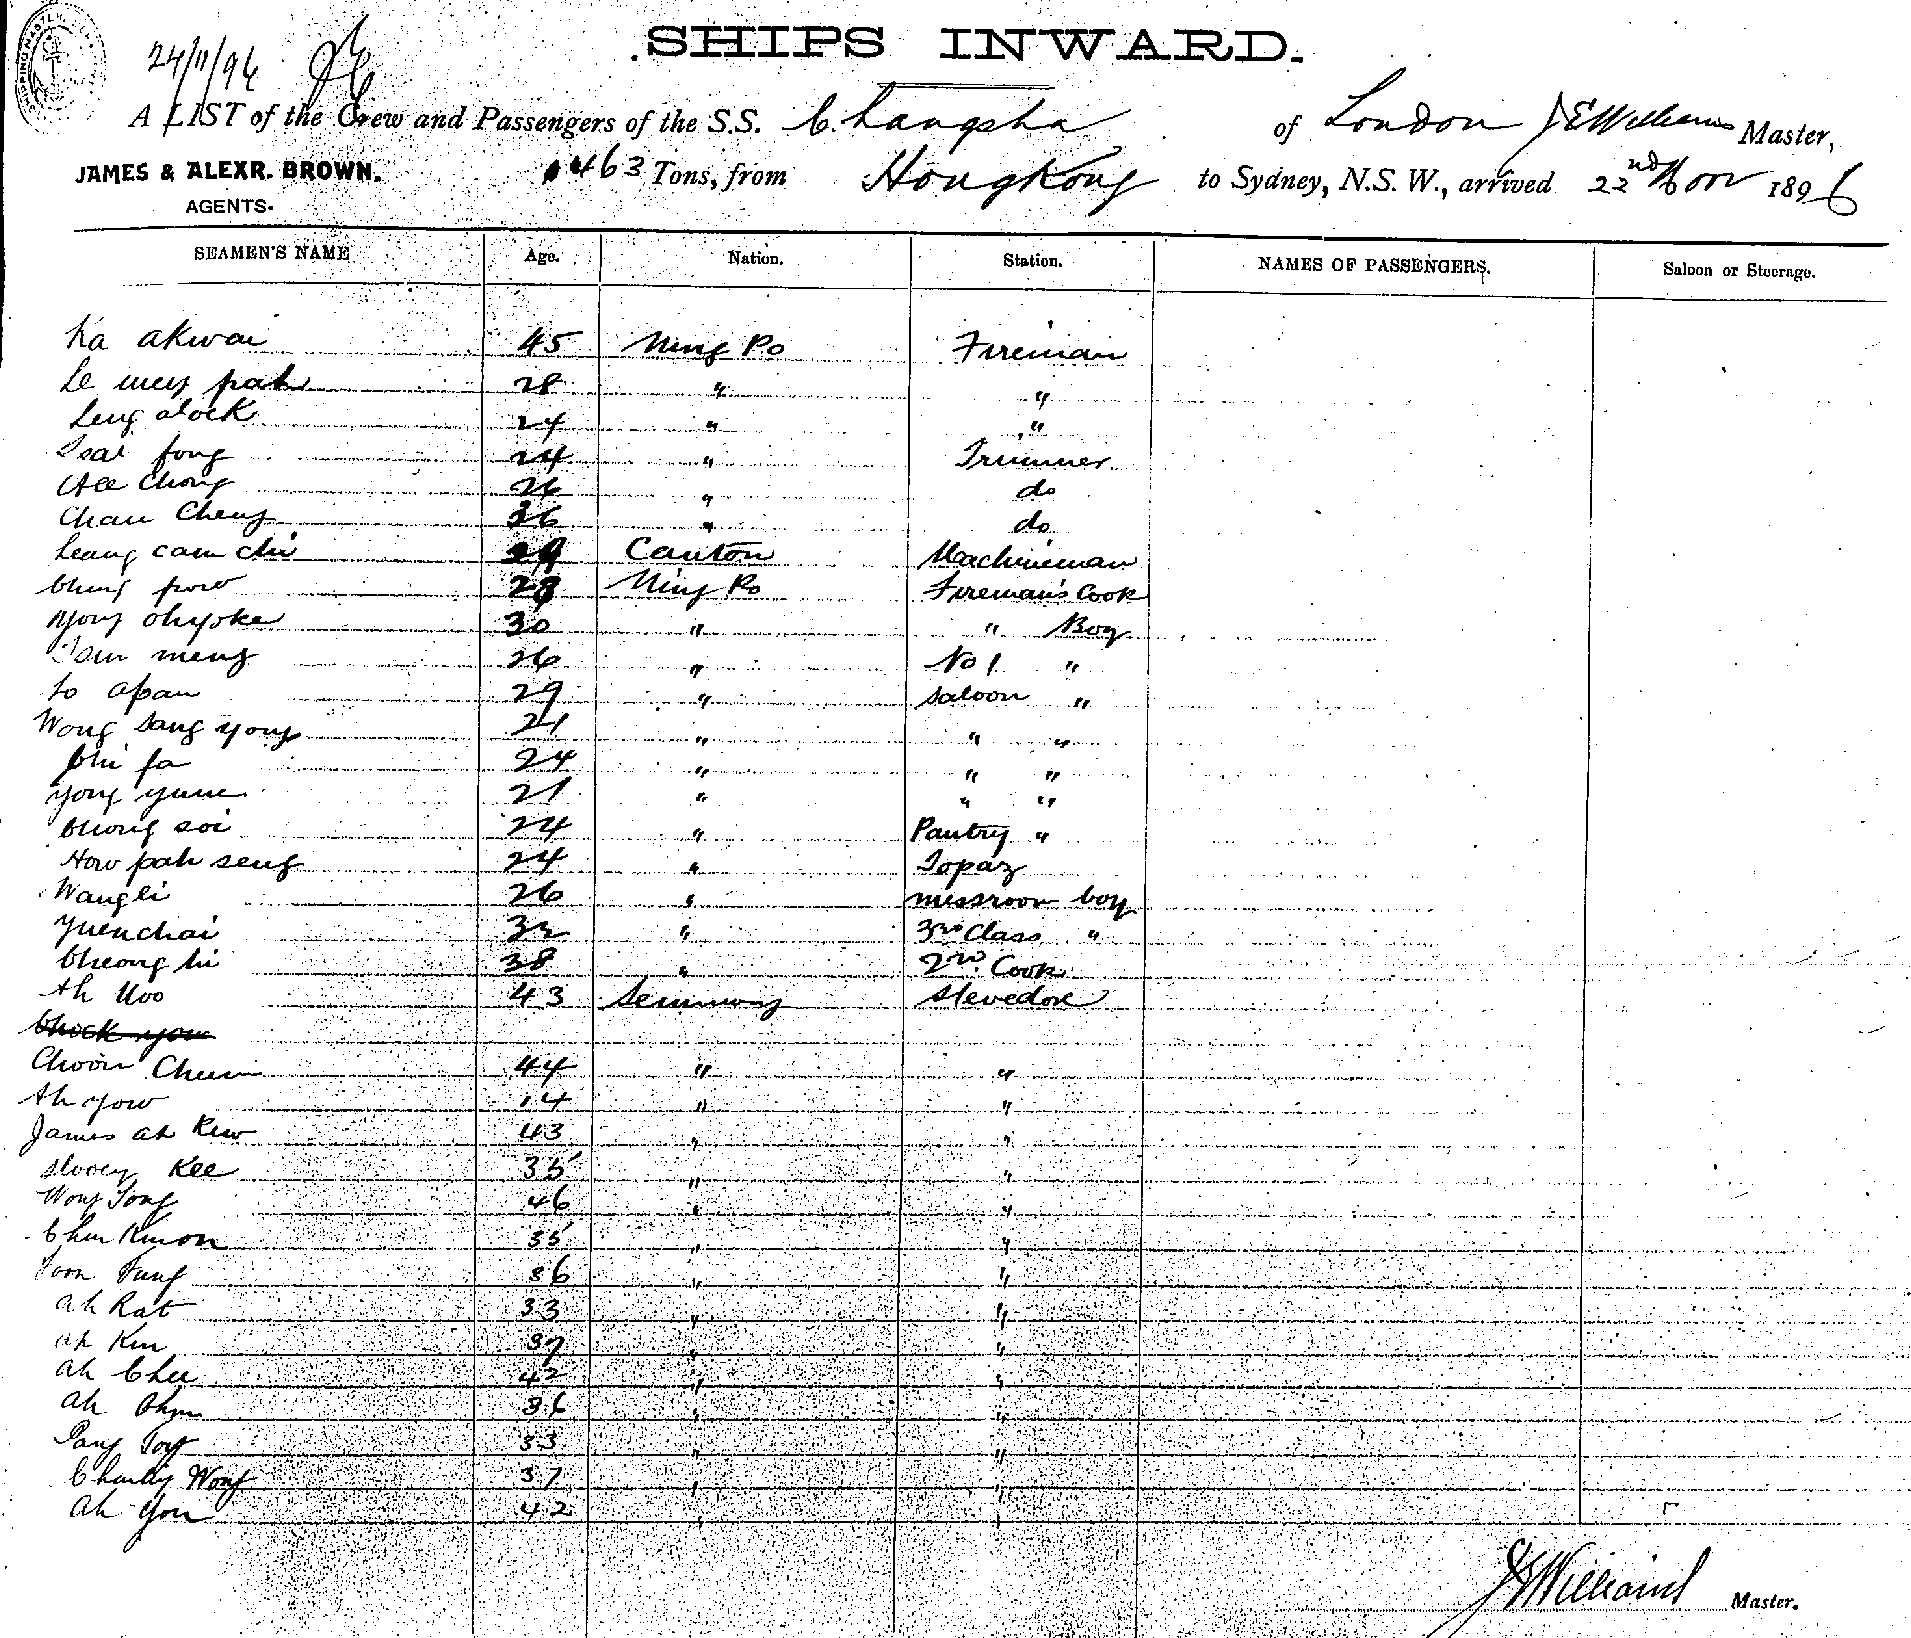 24/11/96
SHIPS INWARD.
A LIST of the Crew and Passengers of the S.S. Changsha of London J E Williams Master,
JAMES & ALEXR. BROWN. 463 Tons, from HongKong to Sydney, N.S.W., arrived 22nd Nov 1896
AGENTS.
SEAMEN'S NAME Age. Nation. Station. NAMES OF PASSENGERS. Saloon or Steerage.
Ka akwai 45 Ning Po Fireman
Le pah 28 " "
Leng alock 24 " "
Tsai fong 24 " Trimmer
Chong 26 " do
Chan Cheng 36 " do
Leang cam chi 29 Canton Machineman
Ching pow 28 Ning Po Fireman's Cook
Yong 30 " " Boy
meng 26 " No 1 "
Lo apan 29 " saloon "
Wong sang yong 21 " " "
Chi fa 24 " " "
yong yune 21 " " "
Chong soi 24 " Pantry "
How pah seng 24 " Topaz
Wangli 26 " messroom boy
Yuenchai 32 " 3rd Class "
Cheong li 38 " 2nd Cook
Ah 43 stevedore
Chock you
Choon Cheen 44 " "
Ah yow 14 " "
James ah Kew 43 " "
Kee 35 " "
Wong Tong 46 " "
Chin Kwon 35 " "
Toon Fung 36 " "
ah Kat 33 " "
ah Kin 37 " "
ah Chee 42 " "
ah 36 " "
Pang 33 " "
Charley Wong 37 " "
ah you 42 " "
J E Williams Master.